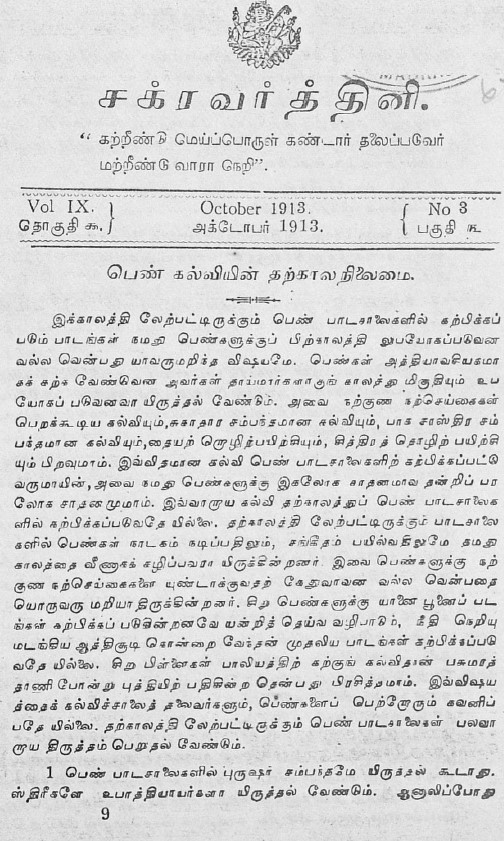 சக்ரவர்த்தினி.
" கற்றீண்டு மெய்ப்பொருள் கண்டார் தலைப்படுவேர்
மற்றீண்டு வாரா நெறி".
Vol IX. October 1913. No 3
தொகுதி ௯. அக்டோபர் 1913. பகுதி ௩
பெண் கல்வியின் தற்காலநிலைமை.
இக்காலத்தி லேற்பட்டிருக்கும் பெண் பாடசாலைகளில் கற்பிக்கப்
படும் பாடங்கள் நமது பெண்களுக்குப் பிற்காலத்தி லுபயோகப்படுவன
வல்ல வென்பது யாவருமறிந்த விஷயமே. பெண்கள் அத்தியாவசியகமா
கக் கற்க வேண்டுவன அவர்கள் தாய்மார்களாகுங் காலத்து மிகுதியும் உப
யோகப் படுவனவா யிருத்தல் வேண்டும். அவை நற்குண நற்செய்கைகள்
பெறக்கூடிய கல்வியும், சுகாதார சம்பந்தமான கல்வியும், பாக சாஸ்திர சம்
பந்தமான கல்வியும், தையற் றொழிற்பயிற்சியும், சித்திரத் தொழிற் பயிற்சி
யும் பிறவுமாம். இவ்விதமான கல்வி பெண் பாடசாலைகளிற் கற்பிக்கப்பட்டு
வருமாயின், அவை நமது பெண்களுக்கு இகலோக சாதனமாவ தன்றிப் பர
லோக சாதனமுமாம். இவ்வாறாய கல்வி தற்காலத்துப் பெண் பாடசாலைக
ளில் கற்பிக்கப்படுவதே யில்லை. தற்காலத்தி லேற்பட்டிருக்கும் பாடசாலை
களில் பெண்கள் நாடகம் நடிப்பதிலும், சங்கீதம் பயில்வதிலுமே தமது
காலத்தை வீணாகக் கழிப்பவரா யிருக்கின்றனர். இவை பெண்களுக்கு நற்
குண நற்செய்கைகளை யுண்டாக்குவதற் கேதுவாவன வல்ல வென்பதை
யொருவரு மறியாதிருக்கின்றனர். சிறு பெண்களுக்கு யானை பூனைப் பட
ங்கள் கற்பிக்கப் படுகின்றனவே யன்றித் தெய்வ வழிபாடும், நீதி நெறியு
மடங்கிய ஆத்திசூடி கொன்றை வேந்தன் முதலிய பாடங்கள் கற்பிக்கப்படு
வதே யில்லை. சிறு பிள்ளைகள் பாலியத்திற் கற்குங் கல்விதான் பசுமரத்
தாணி போன்று புத்தியிற் பதிகின்ற தென்பது பிரசித்தமாம். இவ்விஷய
த்தைக் கல்விச்சாலைத் தலைவர்களும், பெண்களைப் பெற்றோரும் கவனிப்
பதே யில்லை. தற்காலத்தி லேற்பட்டிருக்கும் பெண் பாடசாலைகள் பலவா
றாய திருத்தம் பெறுதல் வேண்டும்.
1 பெண் பாடசாலைகளில் புருஷர் சம்பந்தமே யிருத்தல் கூடாது.
ஸ்திரீகளே உபாத்தியாயர்களா யிருத்தல் வேண்டும். ஆனாலிப்போது
9